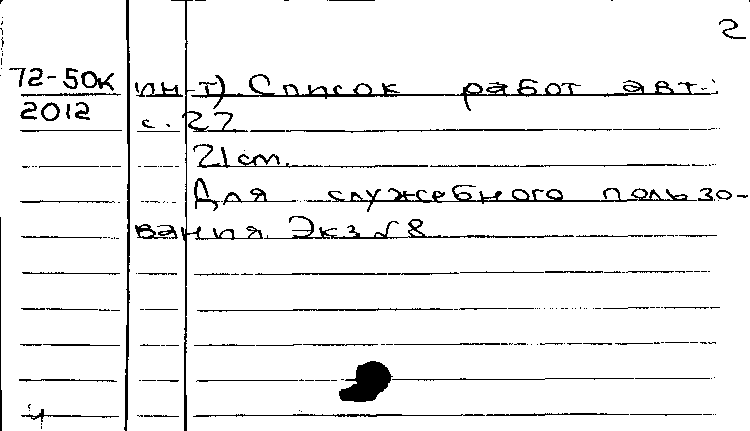 2
72-50к ин-т) Список работ авт.:
2012 с. 27
21 cm.
Для служебного пользо-
вания. Экз № 8
4